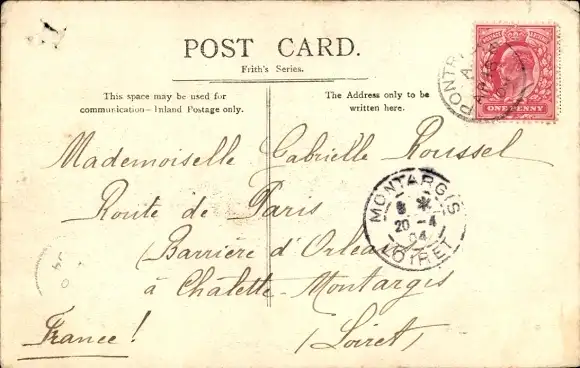 POST CARD.
Frith's Series.
This space may be used for
communication—Inland Postage only.
The Address only to be
written here.
POSTAGE REVENUE
ONE PENNY
Mademoiselle Gabrielle Roussel
Route de Paris
Barrière d'Orléans
à Chalette-Montargis
(Loiret)
France!
MONTARGIS
20 -4
04
LOIRET